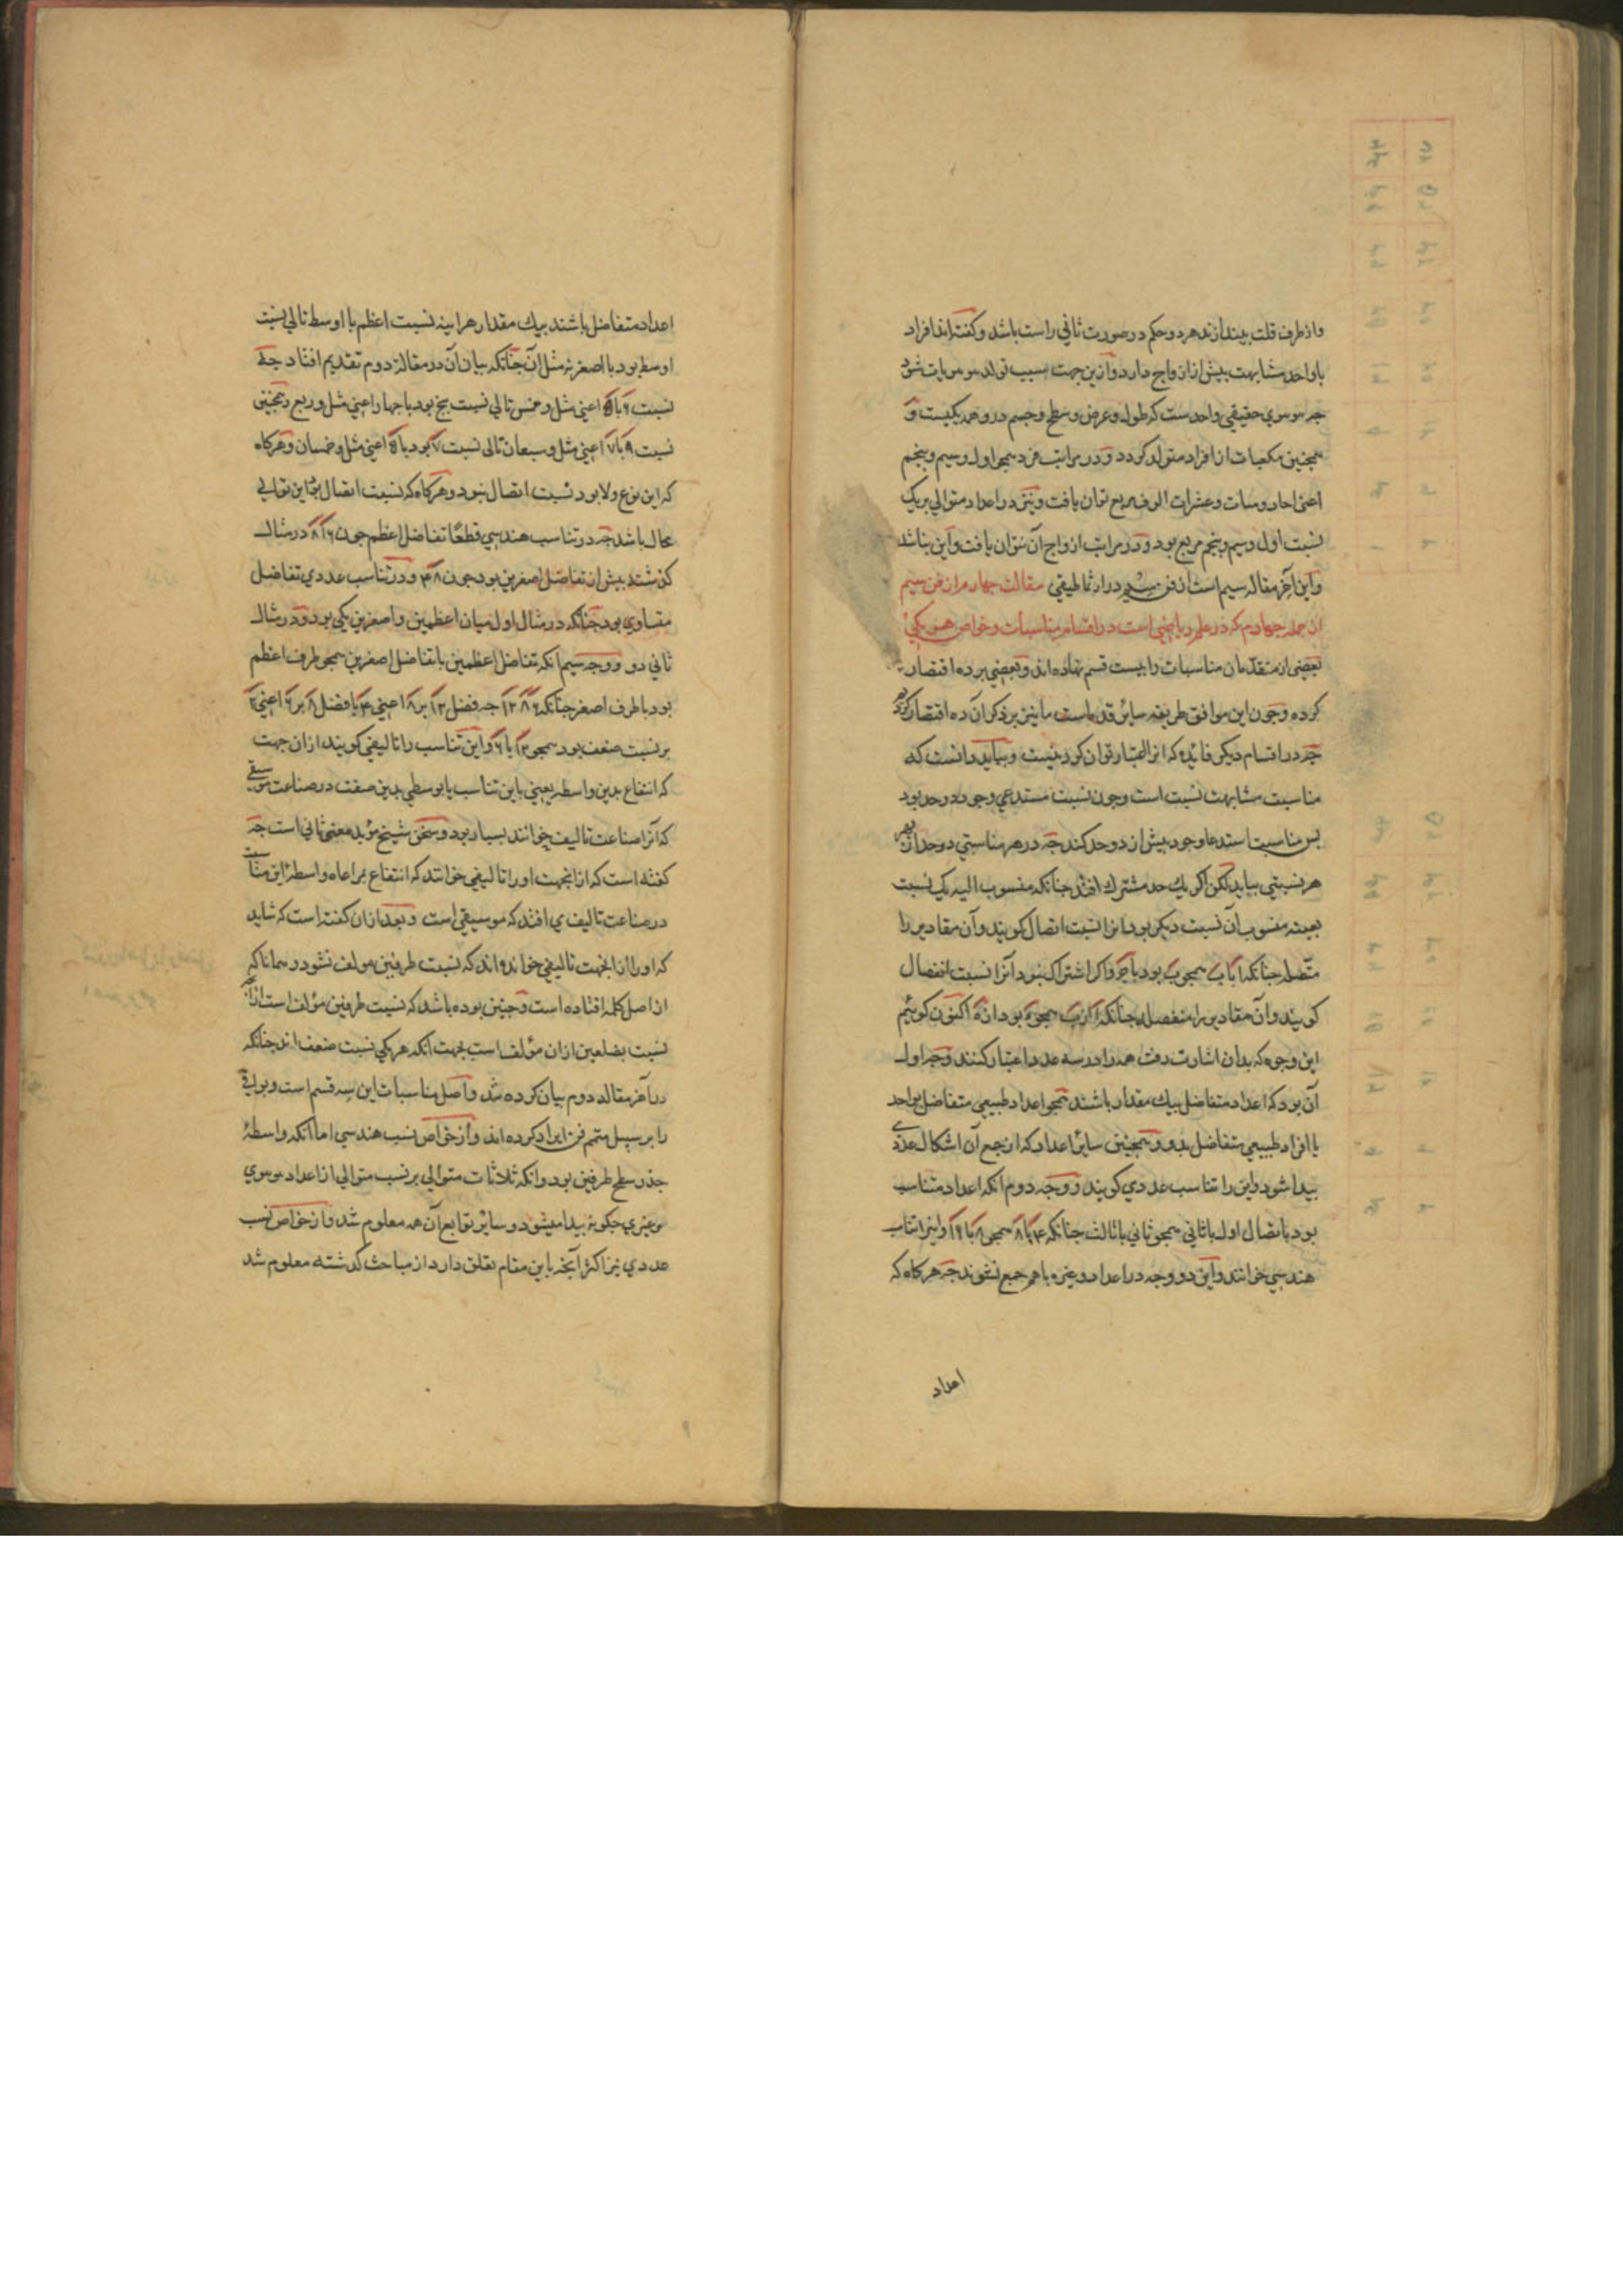 و از طرف قلت بیندازند هر دو حکم در صورت ثانی راست باشد و کفته‌اند افراد
با واحد مشابهت بیش از ازواج دارد و ازین جهت سبب تولد مومویات شود
جه موموی حقیقی واحدست که طول و عرض و سطح و جسم درو همه یکیست و
همجنین مکعبات از افراد متولد کردد و در مراتب فرد همجو اول و سیم و پنجم
اعنی احاد و میات و عشرات الوف مربع توان یافت و نیز در اعداد متوالی بر یک
نسبت اول و سیم و پنجم مربع بود و در مراتب ازواج آن نتوان یافت و این باشد
و این آخر مقاله سیم است از فن سیم در ارثماطیقی مقالت جهارم از فن سیم
از جمله جهارم که در علم ریاضی است در اقسام مناسبات و خواص هر یکی
بعضی از متقدمان مناسبات را بیست قسم نهاده‌اند و بعضی بر ده اقتصار
کرده و جون این موافق طریقه سایر قدماست ما نیز بر ذکر آن ده اقتصار کردیم
جه در اقسام دیکر فایده که انرا اعتبار توان کرد نیست و بباید دانست که
مناسبت مشابهت نسبت است و جون نسبت مستدعی وجود دو حد بود
بس مناسبت استدعا وجود بیش از دو حد کند جه در هر مناسبتی دو حد از بهر
هر نسبتی بباید لکن اکر یک حد مشترک افتد جنانکه منسوب الیه یک نسبت
بعینه منسوب آن نسبت دیکر بود انرا نسبت اتصال کویند و آن مقادیر را
متصله جنانکه ا با ب همجو ب بود با ج و اکر اشتراک نبود آنرا نسبت انفصال
کویند و آن مقادیر را منفصله جنانکه ا از ب همجو ج بود از د اکنون کوئیم
این وجوه که بدان اشارت رفت همه را در سه عدد اعتبار کنند وجه اول
آن بود که اعداد متفاضل بیک مقدار باشند همجو اعداد طبیعی متفاضل بواحد
یا افراد طبیعی متفاضل بدو و همجنین سایر اعداد که از جمع آن اشکال عددی
بیدا شود و این را تناسب عددی کویند و وجه دوم انکه اعداد متناسب
بود باتصال اول با ثانی همجو ثانی با ثالث جنانکه ۴ با ۸ همجو ۸ با ۱۶ و اینرا تناسب
هندسی خوانند و این دو وجه در اعداد و غیره با هم جمع نشوند جه هرکاه که
اعداد
اعداد متفاضل باشند بیک مقدار هراینه نسبت اعظم با اوسط تالی نسبت
اوسط بود با اصغر نه مثل ان جنانکه بیان آن در مقاله دوم تقدیم افتاد جه
نسبت ۶ با ۵ اعنی مثل و خمس تالی نسبت بنج بود با جهار اعنی مثل و ربع و همجنین
نسبت ۹ با ۷ اعنی مثل و سبعان تالی نسبت ۷ بود با ۵ اعنی مثل و خمسان و هرکاه
که این نوع ولا بود نسبت اتصال نبود و هرکاه که نسبت اتصال بود این توالی
محال باشد جه در تناسب هندسی قطعًا تفاضل اعظم جون ۱۶ ۸ در مثال
کذشته بیش از تفاضل اصغرین بود جون ۸ ۴ و در تناسب عددی تفاضل
متساوی بود جنانکه در مثال اول میان اعظمین و اصغرین یکی بود و در مثال
ثانی دو و وجه سیم انکه تفاضل اعظمین با تفاضل اصغرین همجو طرف اعظم
بود با طرف اصغر جنانکه ۶ ۸ ۱۲ جه فضل ۱۲ بر ۸ اعنی ۴ با فضل ۸ بر ۶ اعنی ۲
بر نسبت ضعف بود همجو ۱۲ با ۶ و این تناسب را تالیفی کویند از ان جهت
که انتفاع بدین واسطه یعنی باین تناسب یا بوسطی بدین صفت در صناعت موسیقی
که آنرا صناعت تالیف خوانند بسیار بود و سخن شیخ مؤید معنی ثانی است جه
کفته است که از انجهت او را تالیفی خوانند که انتفاع بمراعاه واسطهٔ این مناسبت
در صناعت تالیف می افتد که موسیقی است و بعد از ان کفته است که شاید
که او را از انجهت تالیفی خوانده‌اند که نسبت طرفین مولف نشود و همانا که
از اصل کلمه افتاده است و جنین بوده باشد که نسبت طرفین مؤلف است ازانکه
نسبت بضلعین از ان مؤلف است بجهت انکه هر یکی نسبت ضعف اند جنانکه
در آخر مقاله دوم بیان کرده شد و اصل مناسبات این سه قسم است و بواقی
را بر سبیل متمم فن ایراد کرده‌اند و از خواص نسب هندسی اما انکه واسطهٔ
جذر سطح طرفین بود و انکه ثلاثات متوالی بر نسب متوالی از اعداد موموی
و غیری جکونه بیدا میشود و سایر توابع آن همه معلوم شد و از خواص نسب
عددی نیز اکثر آنجه باین مقام تعلق دارد از مباحث کذشته معلوم شد